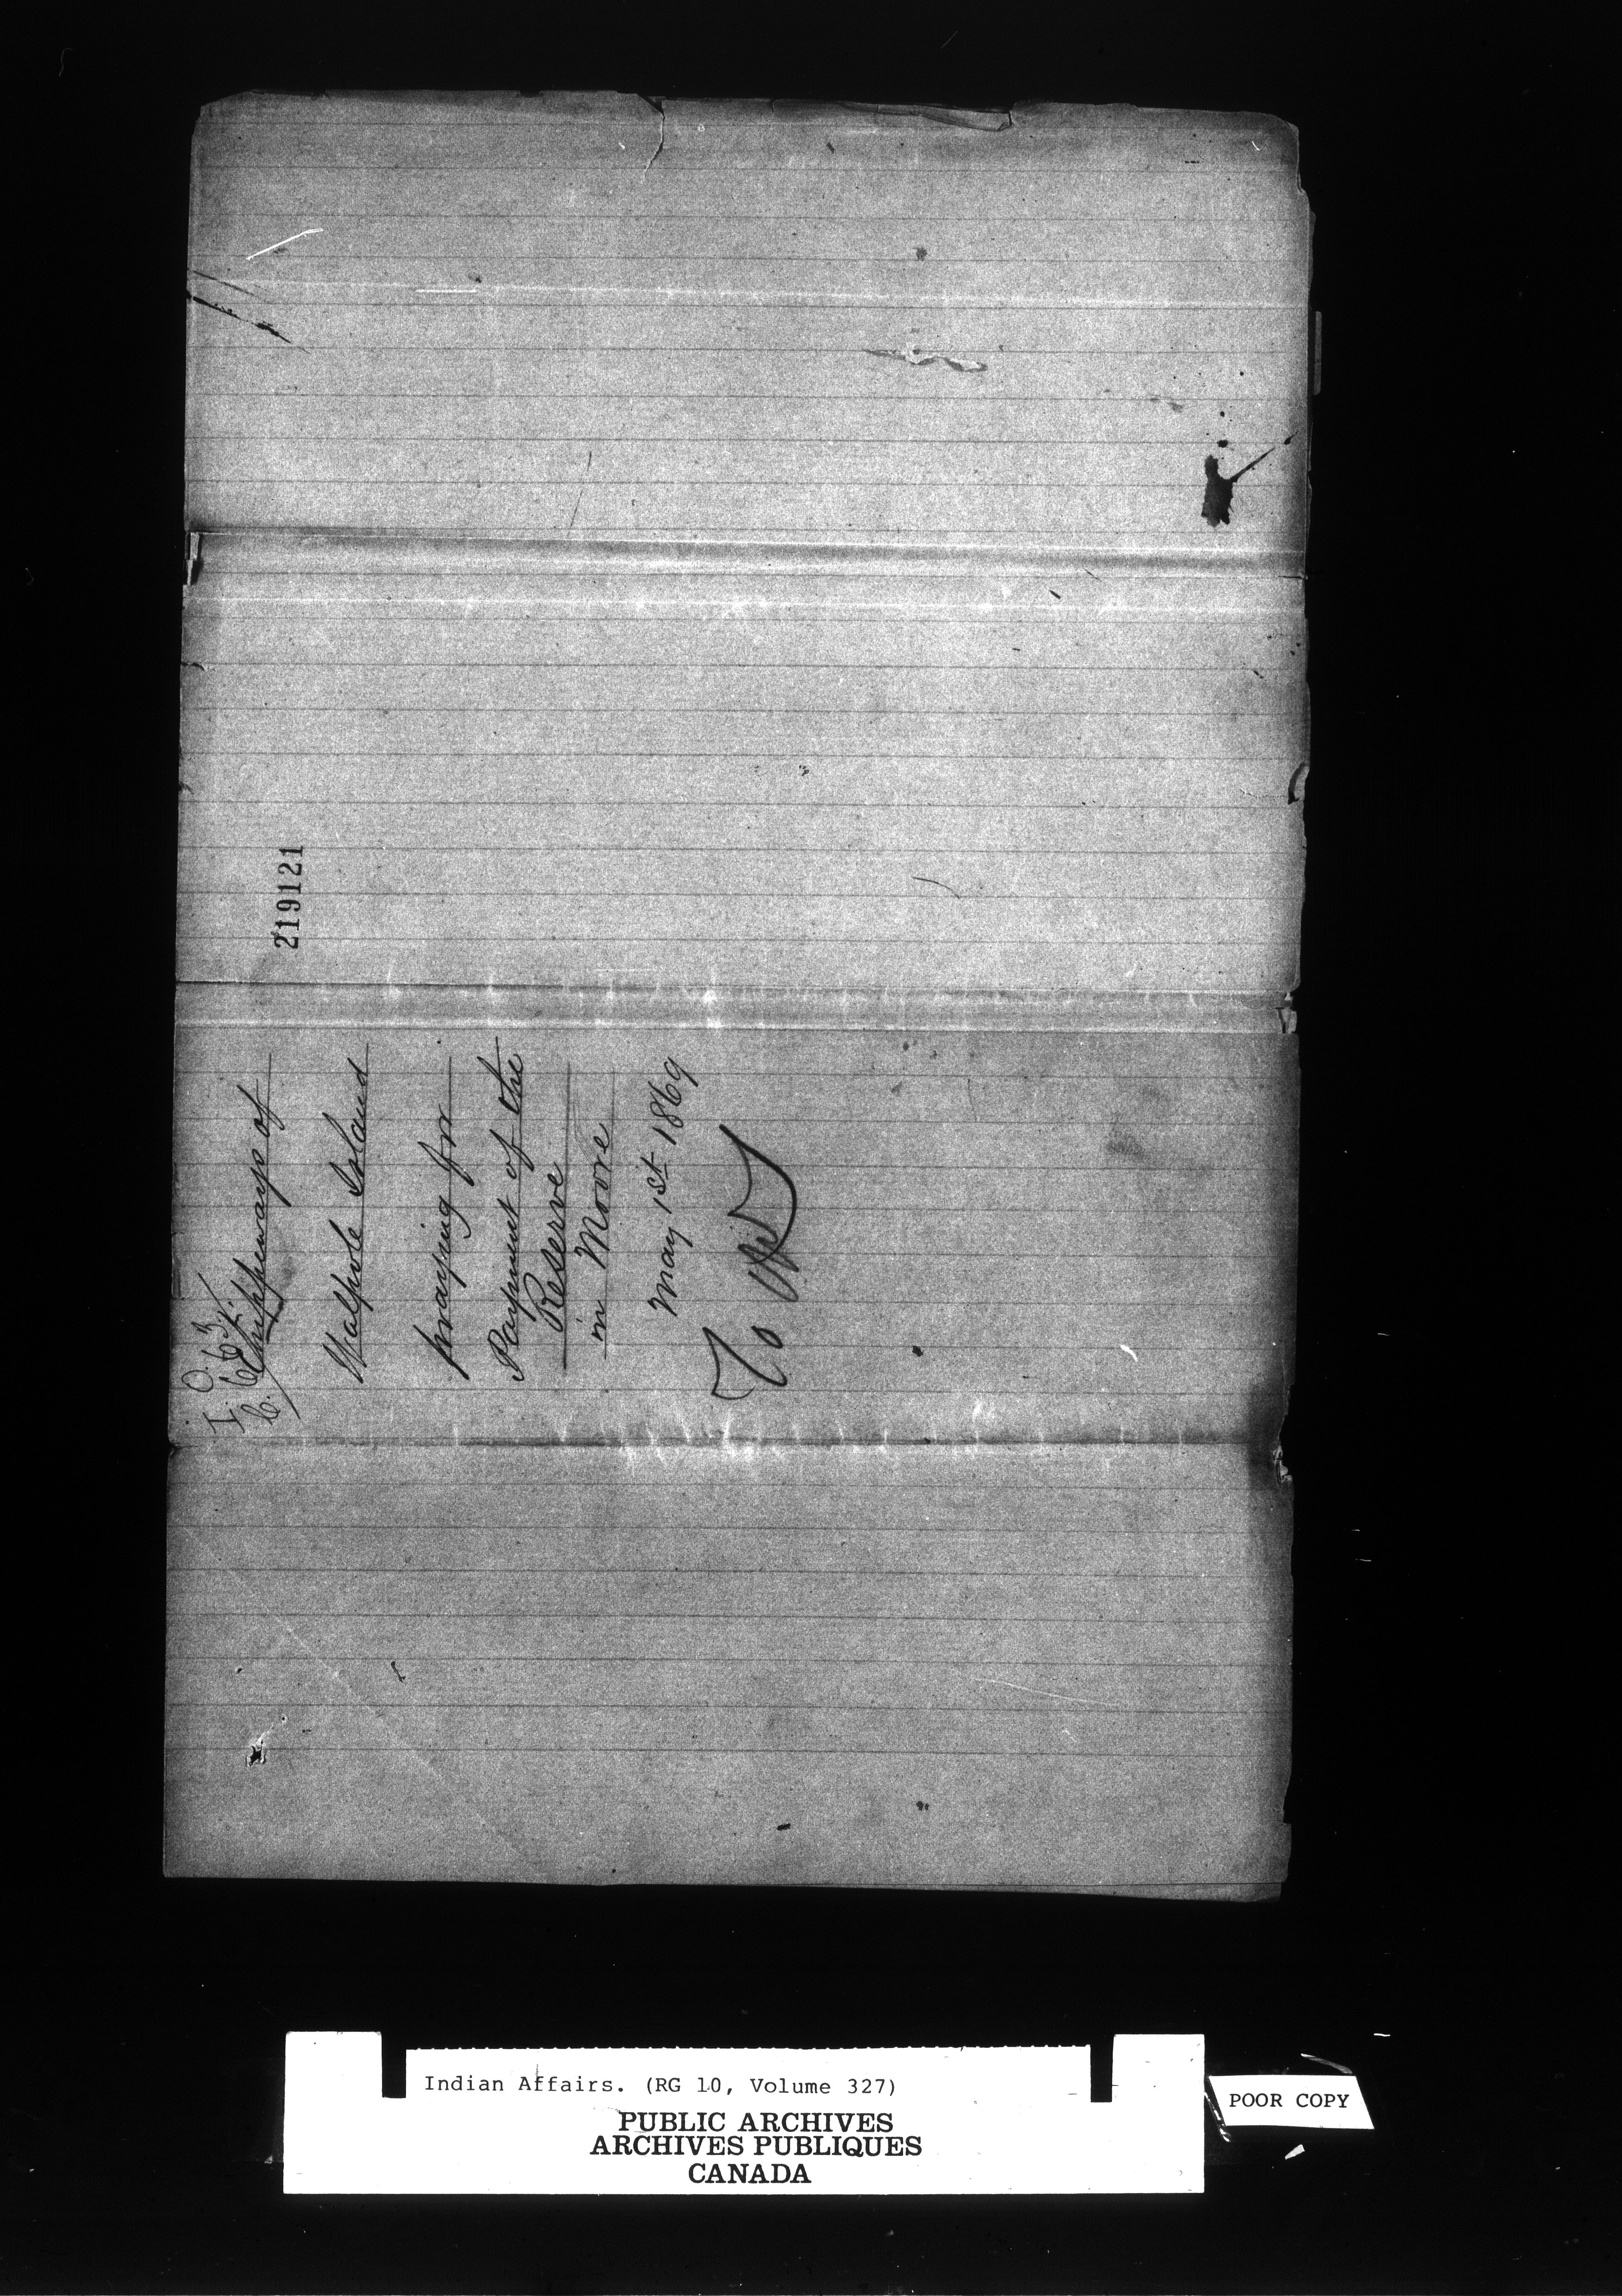 I. O.
C. 663.
Chippeways of
Walpole Island
praying for
Payment of the
Reserve
in Moore
May 1st 1869
To
219121
Indian Affairs. (RG 10, Volume 327)
PUBLIC ARCHIVES
ARCHIVES PUBLIQUES
CANADA
POOR COPY